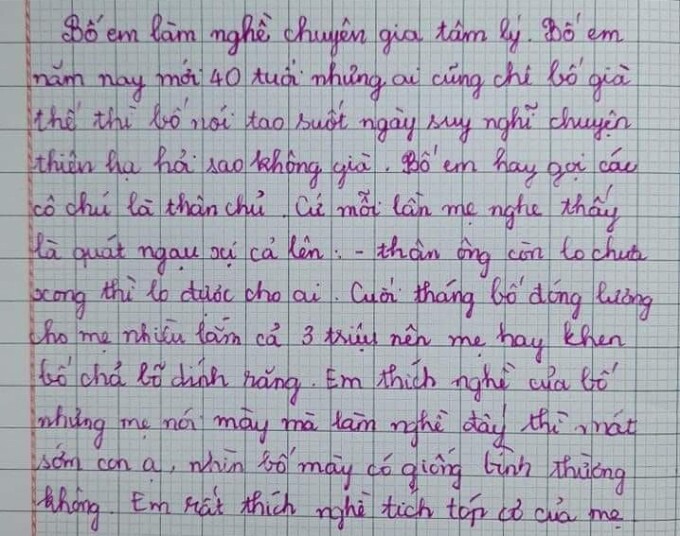 Bố em làm nghề chuyên gia tâm lý. Bố em
năm nay mới 40 tuổi nhưng ai cũng chê bố già
thế thì bố nói tao suốt ngày suy nghĩ chuyện
thiên hạ hả sao không già. Bố em hay gọi các
cô chú là thân chủ. Cứ mỗi lần mẹ nghe thấy
là quát ngậu xị cả lên: - thân ông còn lo chưa
xong thì lo được cho ai. Cuối tháng bố đóng lương
cho mẹ nhiều lắm cả 3 triệu nên mẹ hay khen
bố chả bõ dính răng. Em thích nghề của bố
nhưng mẹ nói mày mà làm nghề đấy thì mát
sớm con ạ, nhìn bố mày có giống bình thường
không. Em rất thích nghề tích tóp cơ của mẹ